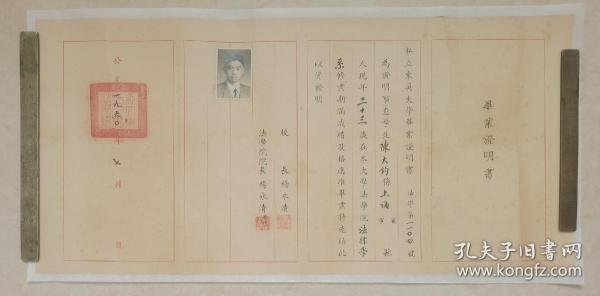 畢業證明書
私立東吳大學畢業證明書 法字第一一〇四號
為證明事查學生陳大鈞係上海市 縣
人現年二十三歲在本大學法學院法律學
系修業期滿成績及格應准畢業特先給此
以資證明
校長楊永清
法學院院長楊永清
公 一九五〇年 月 日
孔夫子旧书网
www.kongfz.com